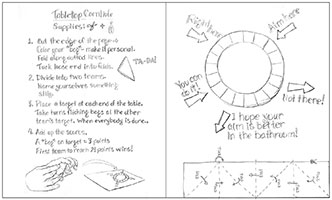 Tabletop Cornhole
Supplies:
1. Cut the edge of the page.
Color your "bag" - make it personal.
Fold along dotted lines.
Tuck loose end into fold.
TA-DA!
2. Divide into two teams.
Name yourselves something
silly.
3. Place a target at each end of the table.
Take turns flicking bags at the other
team's target. When everybody is done...
4. Add up the scores.
A "bag" on target = 3 points
First team to reach 21 points wins!
Aim here
You can
do it!
Not there!
I hope your
aim is better
in the bathroom!